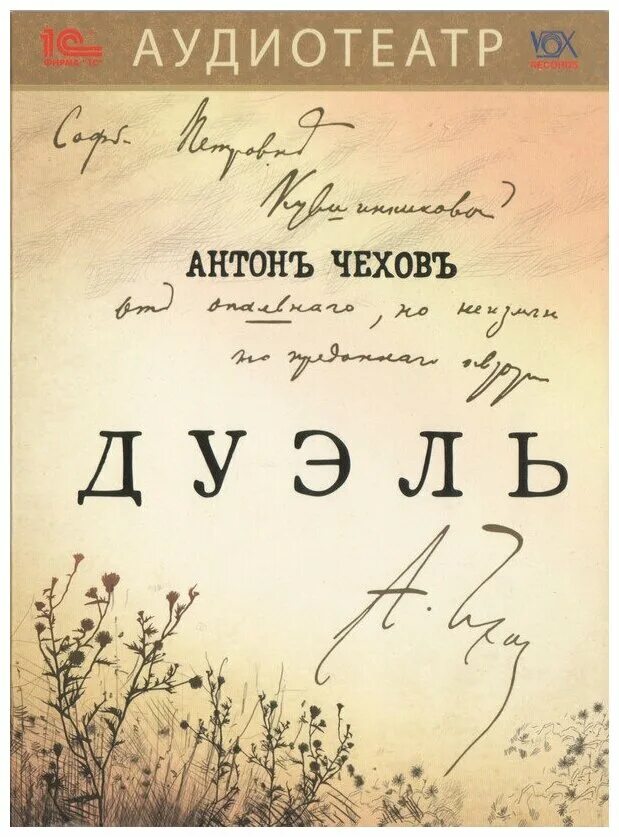 1С АУДИОТЕАТР VOX
ФИРМА "1С" RECORDS
Софьѣ Петровнѣ
Кувшинниковой
АНТОНЪ ЧЕХОВЪ
отъ опальнаго, но неизмѣн
но преданнаго автора
ДУЭЛЬ
А. Чехов